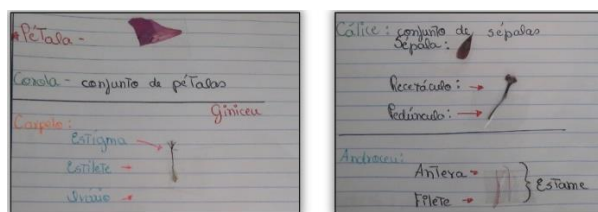 Pétala -
Corola - conjunto de pétalas
Giniceu
Carpelo:
Estigma
Estilete
Ovário
Cálice: conjunto de sépalas
Sépala:
Receptáculo:
Pedúnculo:
Androceu:
Antera
Filete
Estame